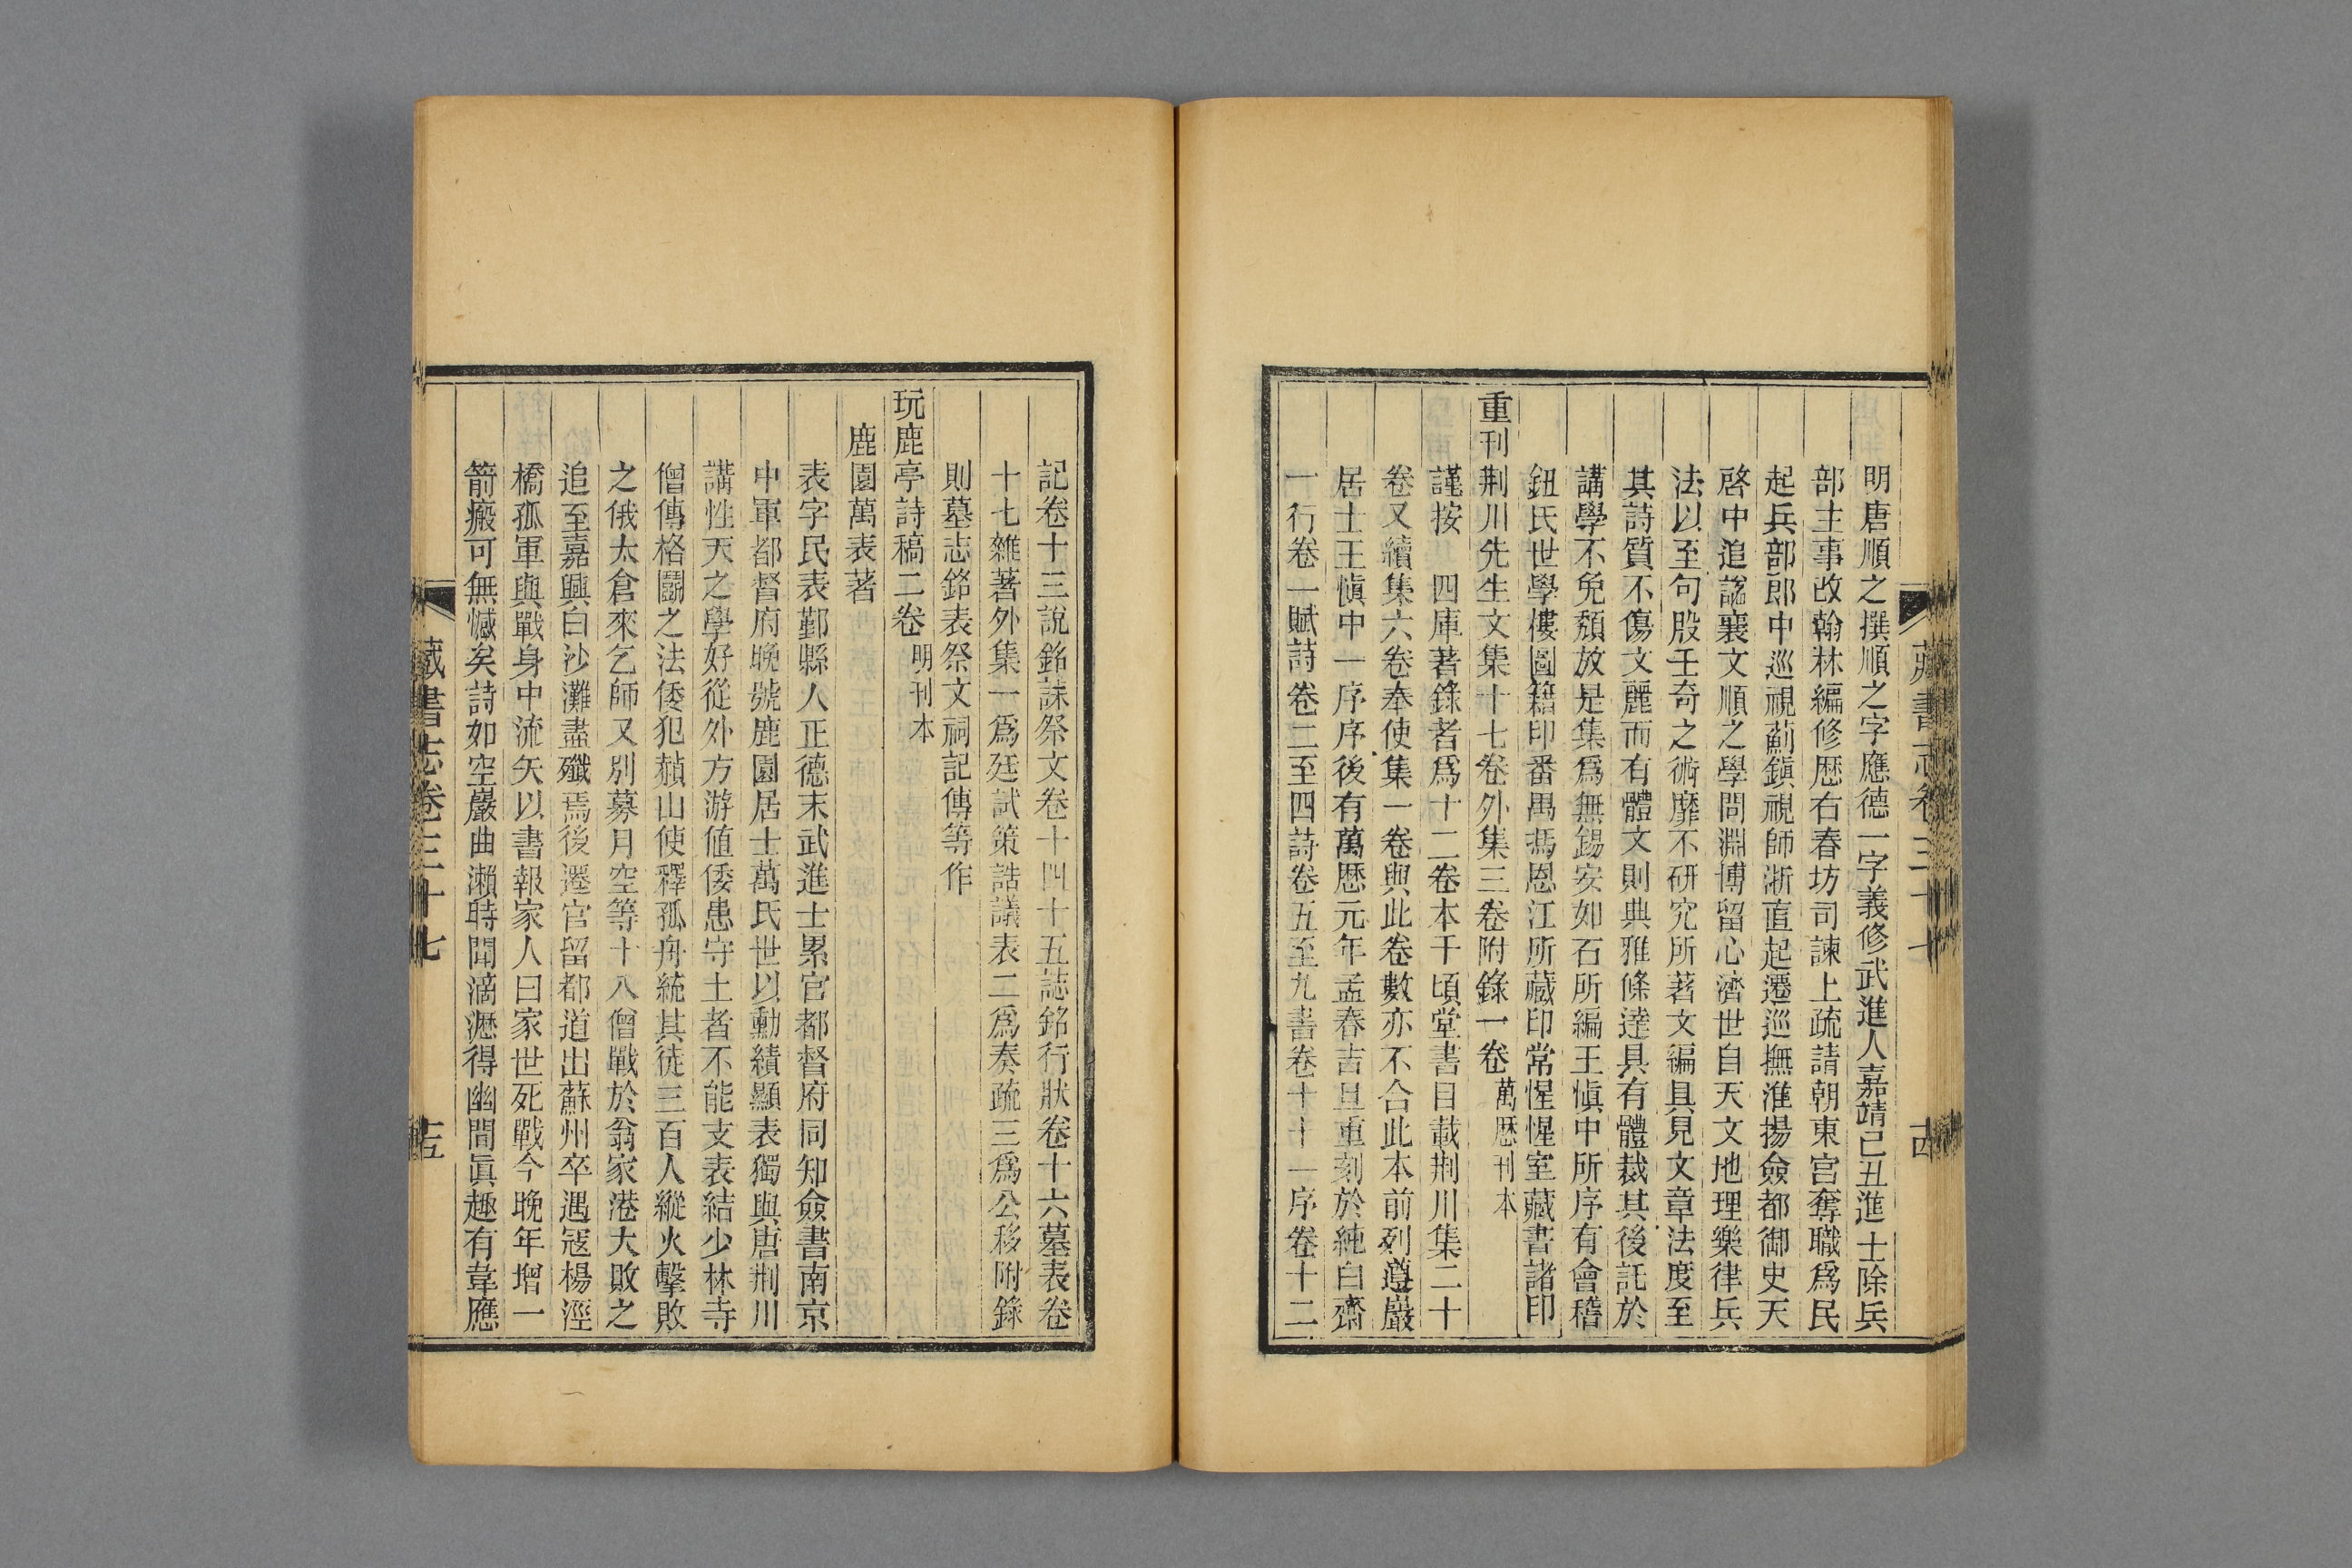 明唐順之撰順之字應德一字義修武進人嘉靖己丑進士除兵
部主事改翰林編修歷右春坊司諫上疏請朝東宮奪職爲民
起兵部郎中巡視薊鎮視師浙直起遷巡撫淮揚僉都御史天
啓中追諡襄文順之學問淵博留心濟世自天文地理樂律兵
法以至句股壬奇之術靡不研究所著文編具見文章法度至
其詩質不傷文麗而有體文則典雅條達具有體裁其後託於
講學不免頹放是集爲無錫安如石所編王愼中所序有會稽
鈕氏世學樓圖籍印番禺馮恩江所藏印常惺惺室藏書諸印
重刊荆川先生文集十七卷外集三卷附錄一卷 萬歷刊本
謹按 四庫著錄者爲十二卷本千頃堂書目載荆川集二十
卷又續集六卷奉使集一卷與此卷數亦不合此本前列遵巖
居士王愼中一序序後有萬歷元年孟春吉旦重刻於純白齋
一行卷一賦詩卷二至四詩卷五至九書卷十十一序卷十二
藏書志卷三十七 十四
記卷十三說銘誄祭文卷十四十五誌銘行狀卷十六墓表卷
十七雜著外集一爲廷試策誥議表二爲奏疏三爲公移附錄
則墓志銘表祭文祠記傳等作
玩鹿亭詩稿二卷 明刊本
鹿園萬表著
表字民表鄞縣人正德末武進士累官都督府同知僉書南京
中軍都督府晚號鹿園居士萬氏世以勳績顯表獨與唐荆川
講性天之學好從外方游値倭患守土者不能支表結少林寺
僧傳格鬭之法倭犯赬山使釋孤舟統其徒三百人縱火擊敗
之俄太倉來乞師又別募月空等十八僧戰於翁家港大敗之
追至嘉興白沙灘盡殲焉後遷官留都道出蘇州卒遇寇楊涇
橋孤軍與戰身中流矢以書報家人曰家世死戰今晚年增一
箭瘢可無憾矣詩如空巖曲瀨時聞滴瀝得幽閒眞趣有韋應
藏書志卷三十七 十五